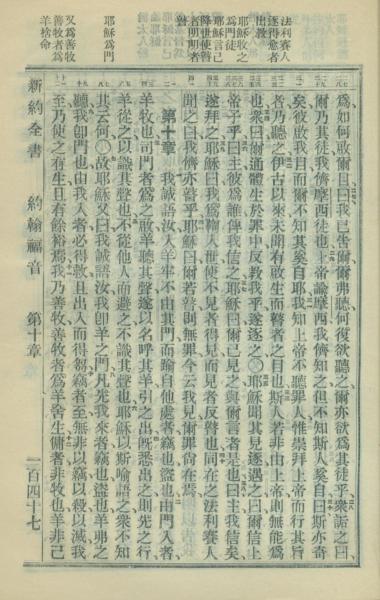 法利賽人
逐得愈者
出教
耶穌收之
爲門徒
耶穌言己
降世使瞽
者明明者
瞽
耶穌爲門
又爲善牧
善牧者爲
羊捨命
爲如何啟爾目曰我已告爾爾弗聽何復欲聽之爾亦欲爲其徒乎衆詬之曰
爾乃其徒我儕摩西徒也上帝諭摩西我儕知之但不知斯人奚自曰斯亦奇
矣彼啟我目而爾不知其奚自耶我知上帝不聽罪人惟崇拜上帝而行其旨
者乃聽之伊古以來未聞有啟生而瞽者之目也斯人若非由上帝則無能爲
也衆曰爾通體生於罪中反教我乎遂逐之〇耶穌聞其見逐遇之曰爾信上
帝子乎曰主彼爲誰俾我信之耶穌曰爾已見之與爾言者是也曰主我信矣
遂拜之耶穌曰我爲鞫人世使不見者得見而見者反瞽也同在之法利賽人
聞之曰我儕亦瞽乎耶穌曰爾若瞽則無罪今云我見爾罪尚在焉
第十章 我誠語汝人羊牢不由其門而踰自他處者竊也盜也由門入者
羊牧也司門者爲之啟羊聽其聲遂以名呼其羊引之出既悉出之則先之行
羊從之以識其聲也不從他人而避之不識其聲也耶穌以斯喻語之衆不知
其云何〇故耶穌又曰我誠語汝我卽羊之門凡先我來者竊也盜也羊弗之
聽我卽門也由我入者必得救且出入而得芻竊者至無非以竊以殺以滅我
至乃使之有生且有餘裕焉我乃善牧善牧者爲羊舍生傭者非牧也羊非己
新約全書 約翰福音 第十章 一百四十七